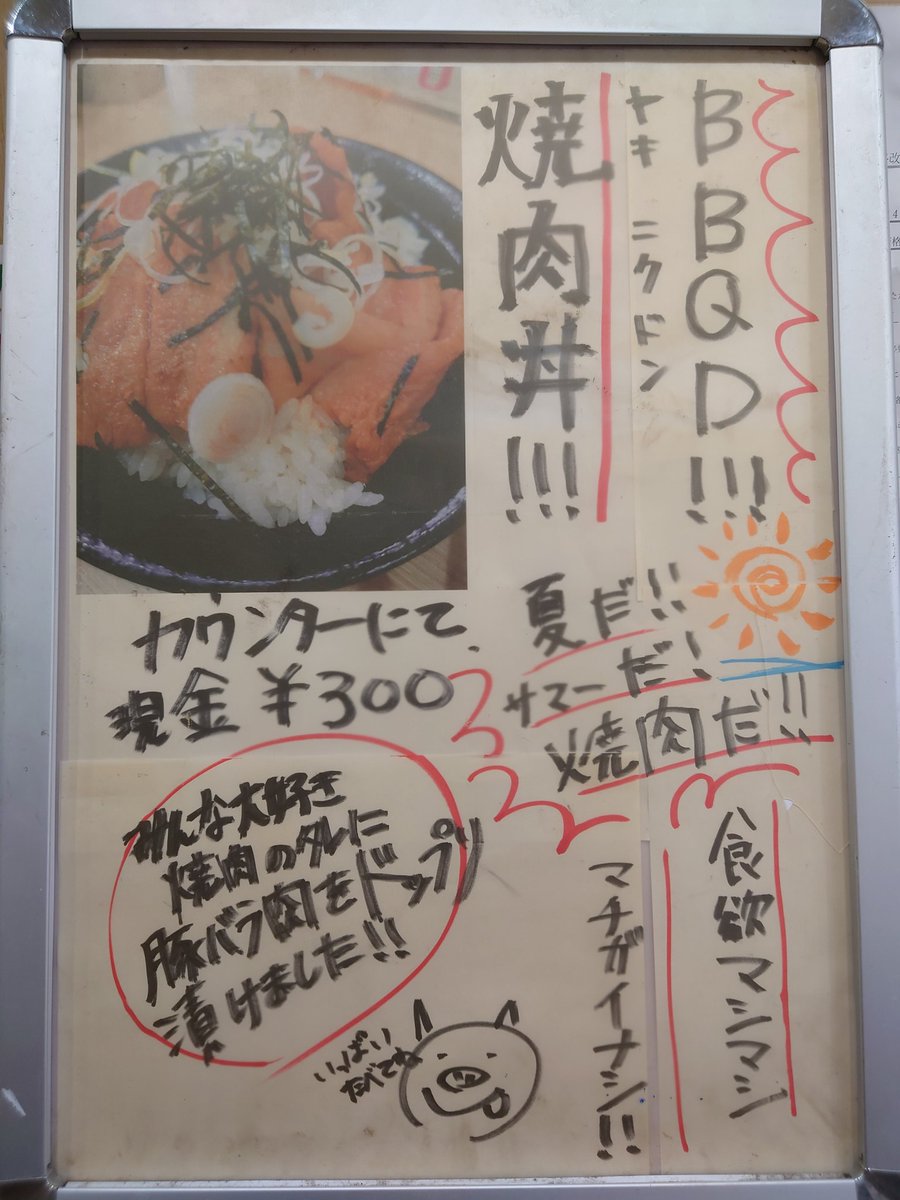 BBQD!!!
ヤキニクドン
焼肉丼!!!
夏だ!!
サマーだ!
焼肉だ!!
カウンターにて
現金¥300
食欲マシマシ
マチガイナシ!!
みんな大好き
焼肉のタレに
豚バラ肉をドップリ
漬けました!!
いっぱい
たべてね